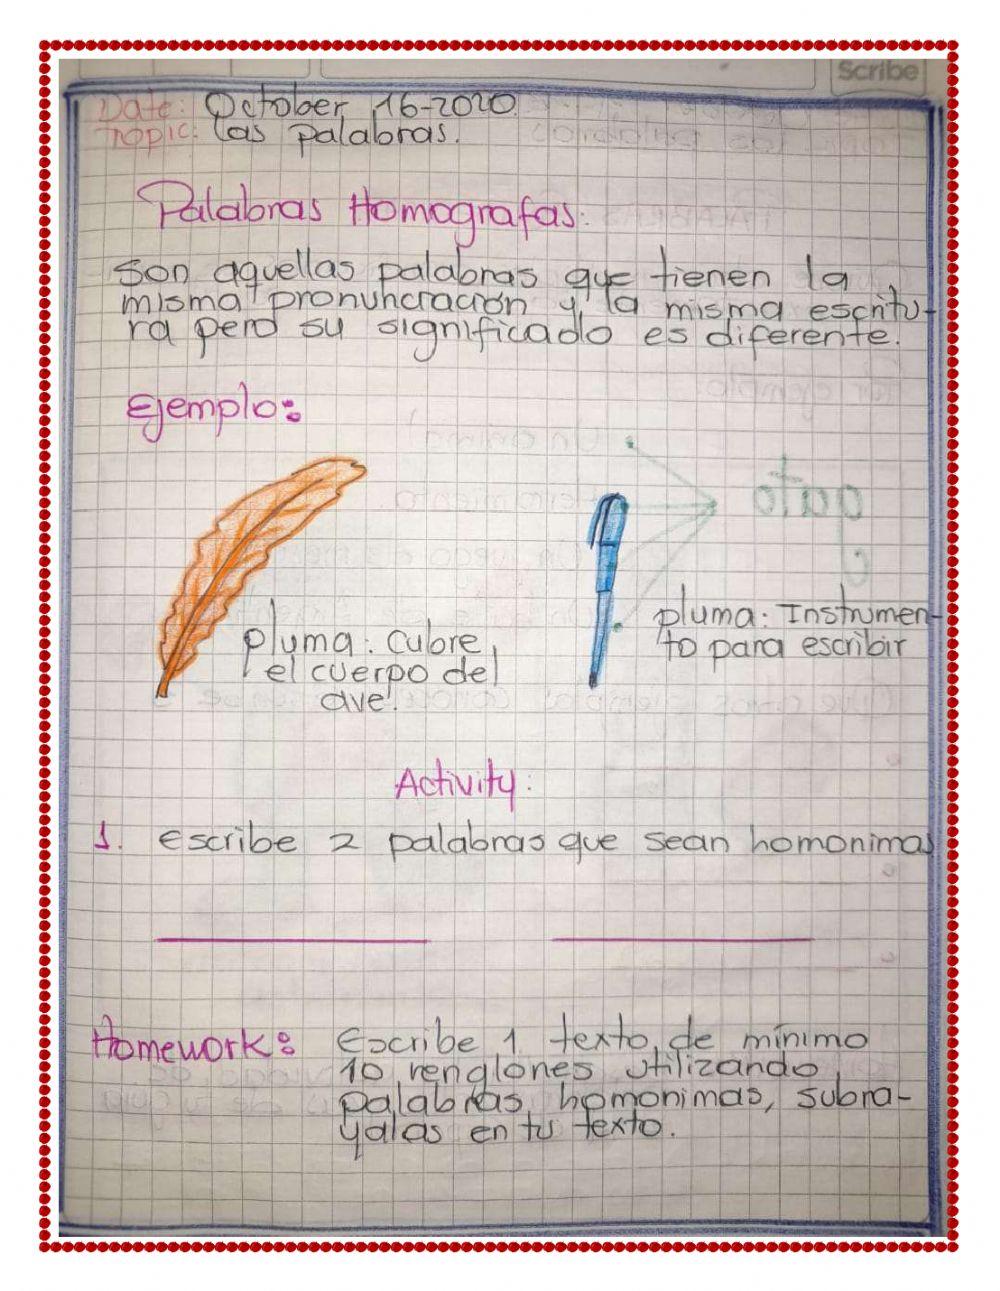 Scribe
Date: October 16-2020
Tropic: las palabras.
Palabras Homografas:
Son aquellas palabras que tienen la
misma pronuncración y la misma escritu-
ra pero su significado es diferente.
Ejemplo:
Un animal
gato
pluma: Cubre
el cuerpo del
ave.
pluma: Instrumen-
to para escribir
Activity:
1. escribe 2 palabras que sean homonimas
Homework: Escribe 1 texto de mínimo
10 renglones utilizando
palabras homonimas, subra-
yalas en tu texto.